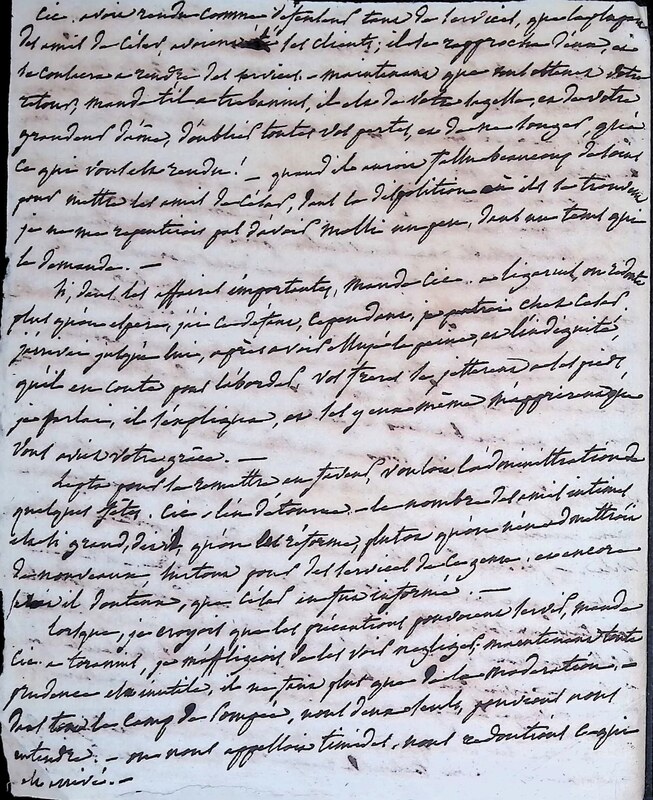 Cic. avoir rendu comme défenseur tant de services, que la plupart
des amis de César, avoient été ses clients; il se rapproche d'eux, et
se consacre à rendre des services. - maintenant que vous obtenez votre
retour, mande t'il à trebonius, il est de votre sagesse, et de votre
grandeur d'âme, d'oublier toutes vos pertes, et de ne songer, qu'à
ce qui vous est rendu! - quand il auroit fallu beaucoup de soins
pour mettre les amis de César, dans la disposition où ils se trouvent
je ne me repentirois pas d'avoir molli un peu, dans un tems qui
le demande. -
Si, dans les affaires importantes, mande Cic. à ligarius, on redoute
plus qu'on espere, j'ai ce défaut, cependant, je pourrois chez César
parvenir jusqu'à lui, après avoir essuyé la peine, et l'indignité
qu'il en coute pour l'aborder, vos freres se jetterent à ses pieds
je parlai, il s'expliqua, et ses yeux même m'apprirent que
vous aviez votre grâce. -
pour se remettre en faveur, vouloit l'administration de
quelques fêtes. Cic. l'en détourne. - le nombre des amis intimes
est si grand, dit il, qu'on les réforme, plutot qu'on n'en admettroit
de nouveaux, surtout pour des services de ce genre. et encore
il doutent, que César en fut informé. -
lorsque, je croyois que les précautions pouvoient servir, mande
Cic. à toranius, je m'affligeois de les voir negliger, maintenant toute
prudence est inutile, il ne faut plus que de la moderation. -
dans tout le Camp de Pompée, nous deux seuls, pouvions nous
entendre. - on nous appelloit timides, nous redoutions ce qui
est arrivé. -